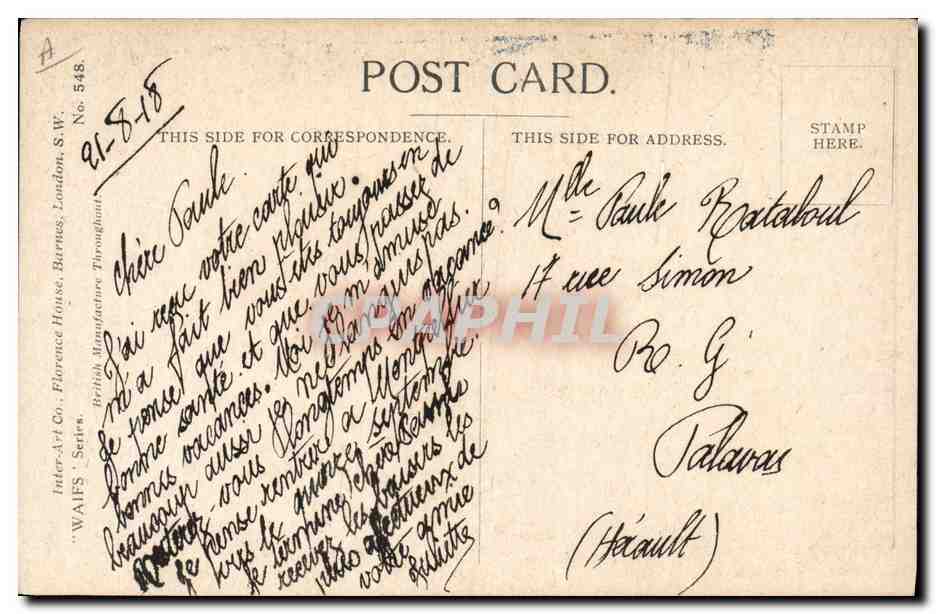 A
POST CARD.
THIS SIDE FOR CORRESPONDENCE.
THIS SIDE FOR ADDRESS.
STAMP
HERE.
Inter-Art Co., Florence House, Barnes, London, S.W.
British Manufacture Throughout.
"WAIFS" Series. No. 548.
21-8-18
Chère Paule
J'ai reçu votre carte qui
m'a fait bien plaisir.
Je pense que vous êtes toujours en
bonne santé et que vous passez de
bonnes vacances. Moi je m'amuse
beaucoup aussi je ne languis pas.
Resterez-vous longtemps en vacance?
Je pense rentrer à Montpellier
vers le quinze septembre.
Je termine chère Paule
recevez les baisers les
plus affectueux de
votre amie
Juliette
Mlle Paule Rataboul
17 rue Simon
R. G
Palavas
(Hérault)
CPAPHIL